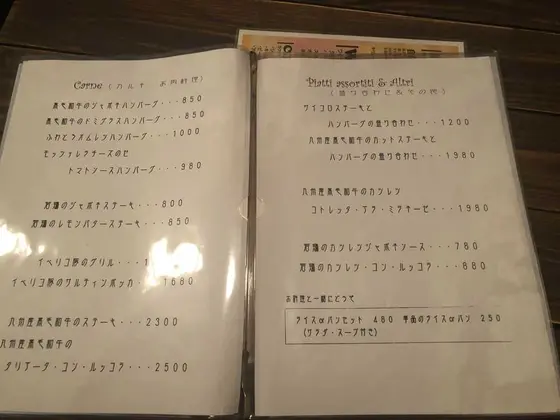 Carne (カルネ お肉料理)
黒毛和牛のジャポネハンバーグ・・・850
黒毛和牛のドミグラスハンバーグ・・・850
ふわとろオムレツハンバーグ・・・1000
モッツァレラチーズのせ
トマトソースハンバーグ・・・980
若鶏のジャポネステーキ・・・800
若鶏のレモンバターステーキ・・・850
イベリコ豚のグリル・・・1
イベリコ豚のサルティンボッカ・・・1680
九州産黒毛和牛のステーキ・・・2300
九州産黒毛和牛の
タリアータ・コン・ルッコラ・・・2500
Piatti assortiti & Altri
(盛り合わせ&その他)
サイコロステーキと
ハンバーグの盛り合わせ・・・1200
九州産黒毛和牛のカットステーキと
ハンバーグの盛り合わせ・・・1980
九州産黒毛和牛のカツレツ
コトレッタ・アラ・ミラネーゼ・・・1980
若鶏のカツレツジャポネソース・・・780
若鶏のカツレツ・コン・ルッコラ・・・880
お料理と一緒にどうぞ
ライスorパンセット 480 単品のライスorパン 250
(サラダ・スープ付き)